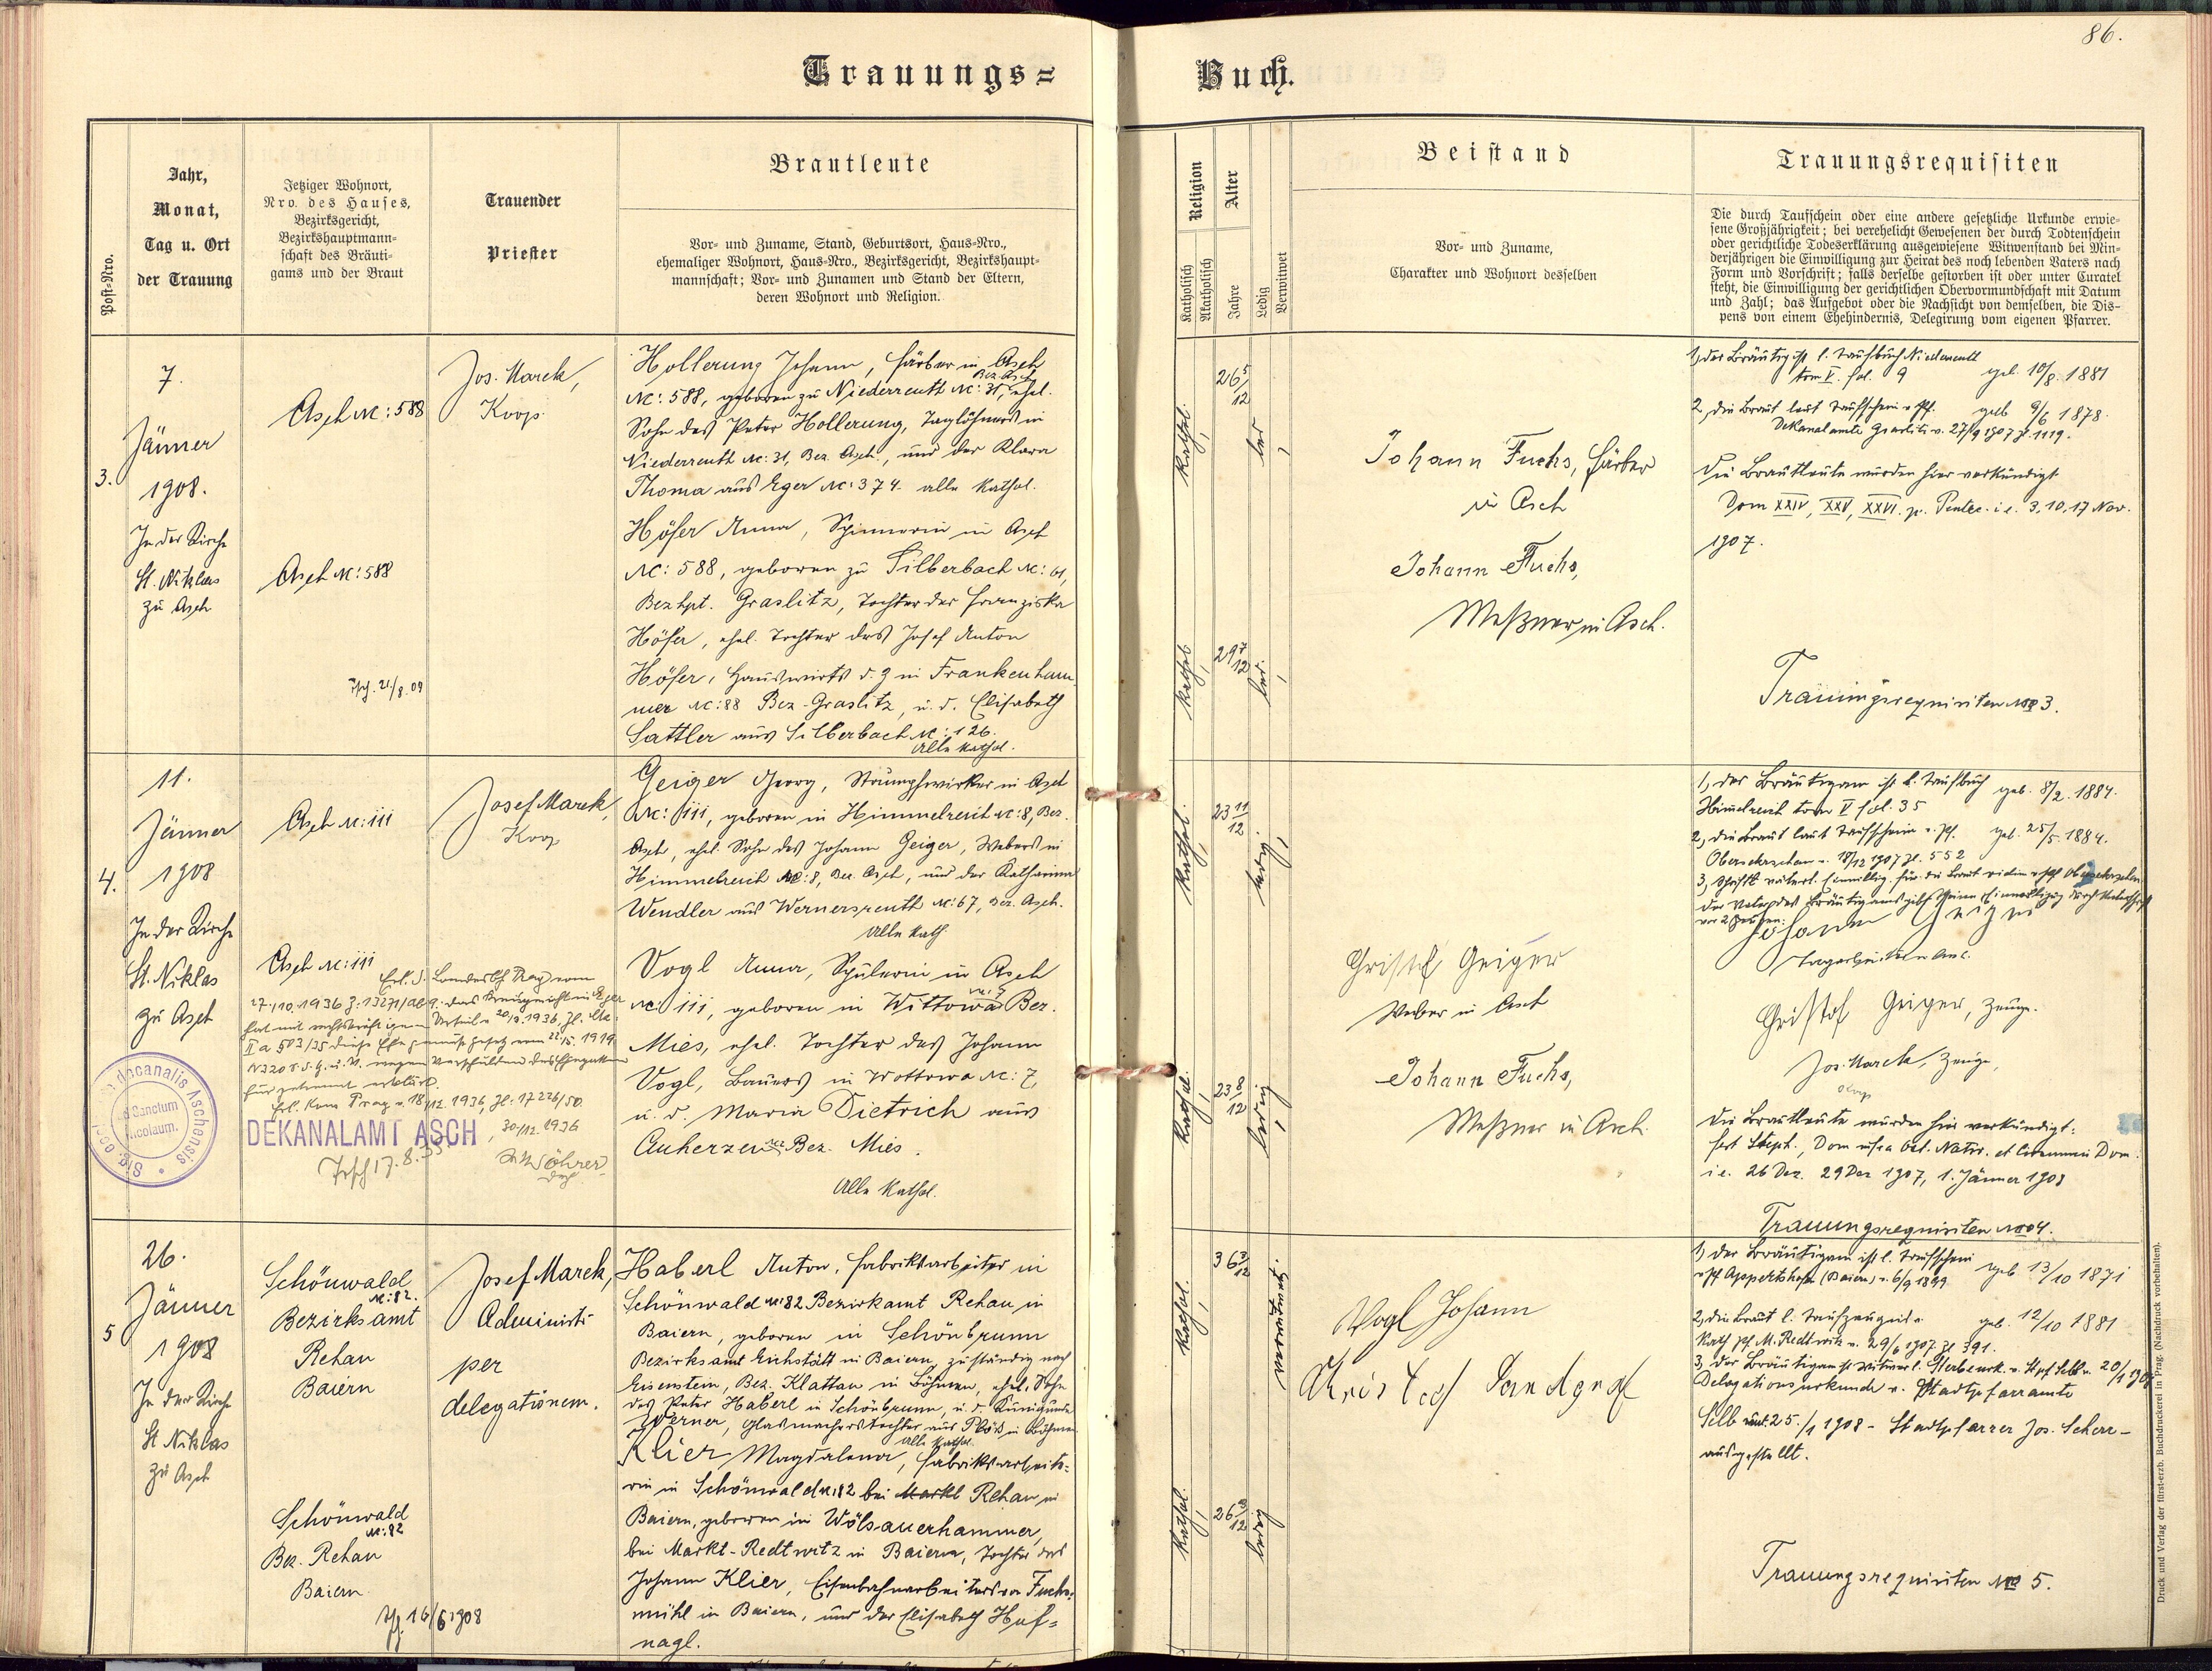 86.
Trauungs=
Buch.
Post-Nro.
Jahr,
Monat,
Tag u. Ort
der Trauung
Jetziger Wohnort,
Nro. des Hauses,
Bezirksgericht,
Bezirkshauptmann-
schaft des Bräuti-
gams und der Braut
Trauender
Priester
Brautleute
Vor- und Zuname, Stand, Geburtsort, Haus-Nro.,
ehemaliger Wohnort, Haus-Nro., Bezirksgericht, Bezirkshaupt-
mannschaft; Vor- und Zunamen und Stand der Eltern,
deren Wohnort und Religion.
Religion
Katholisch
Akatholisch
Alter
Jahre
Ledig
Verwitwet
Beistand
Vor- und Zuname,
Charakter und Wohnort desselben
Trauungsrequisiten
Die durch Taufschein oder eine andere gesetzliche Urkunde erwie-
sene Großjährigkeit; bei verehelicht Gewesenen der durch Todtenschein
oder gerichtliche Todeserklärung ausgewiesene Witwenstand bei Min-
derjährigen die Einwilligung zur Heirat des noch lebenden Vaters nach
Form und Vorschrift; falls derselbe gestorben ist oder unter Curatel
steht, die Einwilligung der gerichtlichen Obervormundschaft mit Datum
und Zahl; das Aufgebot oder die Nachsicht von demselben, die Dis-
pens von einem Ehehindernis, Delegirung vom eigenen Pfarrer.
3.
7.
Jänner
1908.
In der Kirche
St. Niklas
zu Asch
Asch N: 588
Asch N: 588
21/8.09
Jos. Marek,
Koop.
Hollerung Johann, Färber in Asch
N: 588, geboren zu Niederreuth N: 31, Bez. Asch, ehel.
Sohn des Peter Hollerung, Taglöhners in
Niederreuth N: 31, Bez. Asch, und der Klara
Thoma aus Eger N: 374. alle kathol.
Höfer Anna, Spinnerin in Asch
N: 588, geboren zu Silberbach N: 61,
Bezhpt. Graslitz, Tochter der Franziska
Höfer, ehel. Tochter des Josef Anton
Höfer, Hauswirts d. g in Frankenham-
mer N: 88 Bez. Graslitz, u. d. Elisabeth
Sattler aus Silberbach N: 126.
Alle kathol.
kathol.
26 5/12
led.
kathol.
29 7/12
led.
Johann Fuchs, Färber
in Asch
Johann Fuchs,
Meßner in Asch.
1, der Bräutig. ist l. Taufbuch Niederreuth
tom V. fol. 9 geb. 10/8. 1881
2, die Braut laut Taufschein v. Pf. geb 9/6 1878.
Dekanalamte Graslitz v. 27/9 1907 Z. 1119.
Die Brautleute wurden hier verkündigt
Dom XXIV, XXV, XXVI. p. Pentec. i. e. 3, 10, 17 Nov.
1907.
Trauungsrequisiten No 3.
4.
11.
Jänner
1908
In der Kirche
St. Niklas
zu Asch
Asch N: 111
Asch N: 111
Josef Marek,
Koop
Geiger Georg, Strumpfwirker in Asch
N: 111, geboren in Himmelreich N: 8, Bez.
Asch, ehel. Sohn des Johann Geiger, Webers in
Himmelreich N: 8, Bez. Asch, und der Katharina
Wendler aus Wernersreuth N: 67, Bez. Asch.
Alle kath
Vogl Anna, Spulerin in Asch
N: 111, geboren in Wittowa N: 7 Bez.
Mies, ehel. Tochter des Johann
Vogl, Bauers in Wottowa N: 7,
u. d. Maria Dietrich aus
Auherzen Bez. Mies.
Alle kathol.
Erl. d. Landesbh. Prag vom
27./10.1936 Z. 13271/ das Kreisgericht in Eger
hat mit rechtskräftigem Urteil v 20/9.1936, Zl. Ck.
IIa 503/35 diese Ehe gemäß Gesetz vom 22/5. 1919
N 320 S. d. G. u. V. wegen Verschulden des Ehegatten
für getrennt erklärt.
Erl. Kom Prag v. 18/12. 1936, Zl. 17226/50.
30/12. 1936
DEKANALAMT ASCH
decanalis Aschensis
S Sanctum
Nicolaum.
17.8.
kathol.
23 11/12
ledig
kathol.
23 8/12
ledig
Christof Geiger
Weber in Asch
Johann Fuchs,
Meßner in Asch.
1, der Bräutigam ist l. Taufbuch geb. 8/2. 1884.
Himmelreich tom V fol. 35
2, die Braut laut Taufschein v. Pf. geb. 25/5. 1884.
v. 18/12 1907 Zl. 552
Johann Geiger
Christof Geiger, Zeuge.
Jos. Marek, Zeuge,
Die Brautleute wurden hier verkündigt:
fest Steph., Dom infra Oct. Nativ. et Circumcis Dom.
i. e. 26 Dez. 29 Dez 1907, 1. Jänner 1908
Trauungsrequisiten No 4.
5
26.
Jänner
1908
In der Kirche
St Niklas
zu Asch
Schönwald
N: 82.
Bezirksamt
Rehau
Baiern
Schönwald
N: 82
Bez. Rehau
Baiern.
16/6 1908
Josef Marek,
Administ.
per
delegationem.
Haberl Anton, Fabriksarbeiter in
Schönwald N: 82 Bezirkamt Rehau in
Baiern, geboren in Schönbrunn
Bezirksamt Eichstätt in Baiern, zuständig nach
Eisenstein, Bez. Klattau in Böhmen, ehel. Sohn
des Peter Haberl in Schönbrunn, u. d. Kunigunde
Werner, Glasmacherstochter aus Plöß in Böhmen
Alle kathol.
Klier Magdalena, Fabriksarbeite-
rin in Schönwald N: 82 bei Markt Rehau in
Baiern, geboren in Wölsauerhammer,
bei Markt-Redtwitz in Baiern, Tochter des
Johann Klier, Eisenbahnarbeiters von Fuchs-
mühl in Baiern, und der Elisabeth Huf-
nagl.
kathol.
36 3/12
verwitwet.
kathol.
26 3/12
ledig
Vogl Johann
1) der Bräutigam ist l. Taufschein geb 13/10 1871
v. Pf. Appertshofen (Baiern) v. 6/9 1899
2, die Braut l. Taufzeugnis v. geb. 12/10 1881
kath Pf. M. Redtwitz v. 29/6 1907. Zl 391.
Delegationsurkunde v. Stadtpfarramte
Selb 25./1 1908 - Stadtpfarrer Jos. Scherr -
ausgestellt.
Trauungsrequisiten No 5.
Druck und Verlag der fürst-erzb. Buchdruckerei in Prag. (Nachdruck vorbehalten).